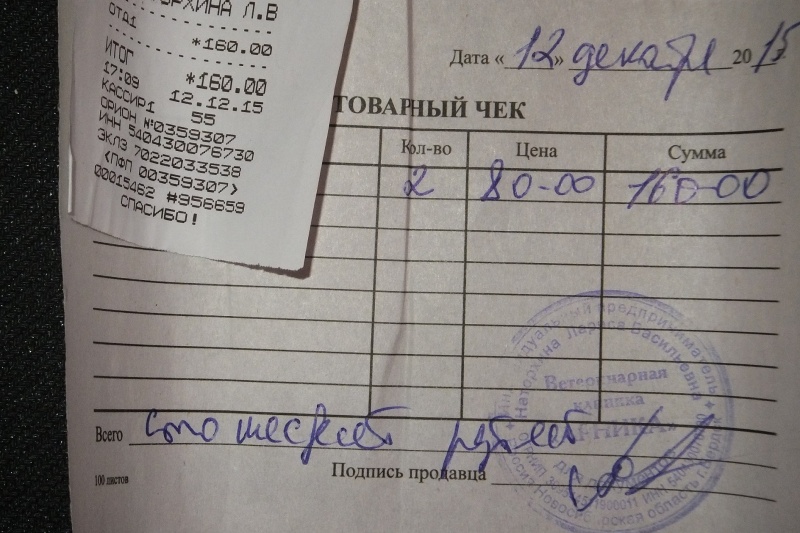 ТОРХИНА Л.В
ОТД1
*160.00
ИТОГ *160.00
17:09 12.12.15
КАССИР1 55
ОРИОН №0359307
ИНН 540430076730
ЭКЛЗ 7022033538
<ПФП 00359307>
00015462 #956659
СПАСИБО!
Дата « 12 » декабря 2015
ТОВАРНЫЙ ЧЕК
Кол-во Цена Сумма
2 80-00 160-00
Индивидуальный предприниматель
Наторхина Лариса Васильевна
Ветеринарная
клиника
Всего сто шестьдесят рублей
Подпись продавца
100 листов